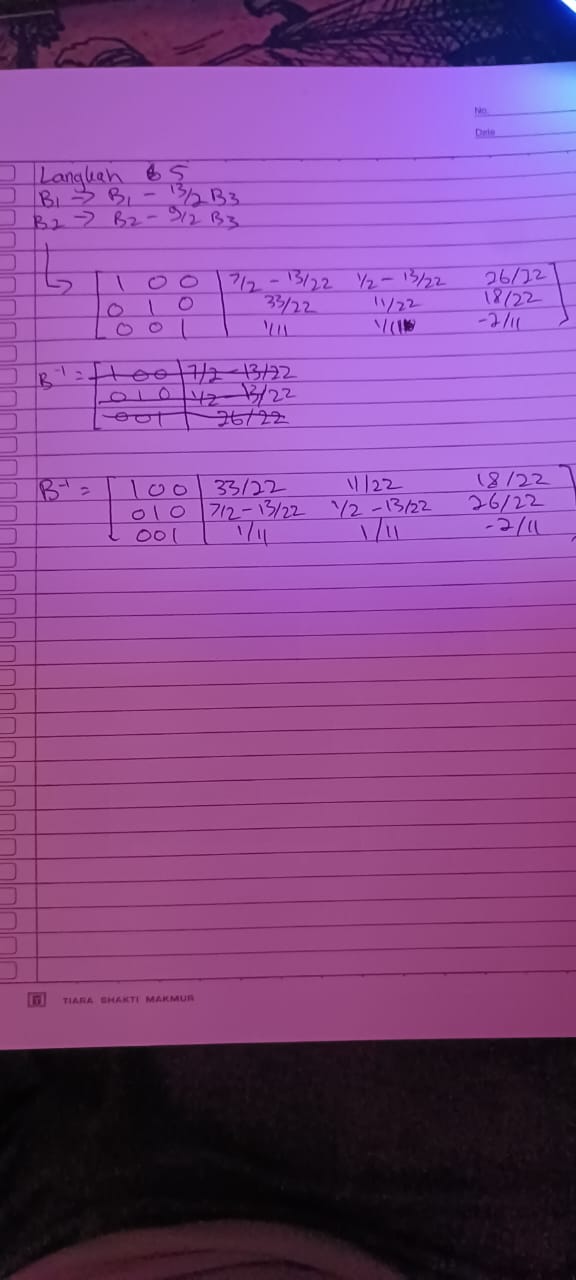 No.
Date
Langkah 5
B1 → B1 - 13/2 B3
B2 → B2 - 9/2 B3
1 0 0 | 7/2 - 13/22 1/2 - 13/22 26/22
0 1 0 33/22 11/22 18/22
0 0 1 1/11 1/11 -2/11
B⁻¹ = 1 0 0 | 7/2 - 13/22
0 1 0 1/2 - 13/22
0 0 1 26/22
B⁻¹ = 1 0 0 | 33/22 11/22 18/22
0 1 0 7/2 - 13/22 1/2 - 13/22 26/22
0 0 1 1/11 1/11 -2/11
TIARA BHAKTI MAKMUR